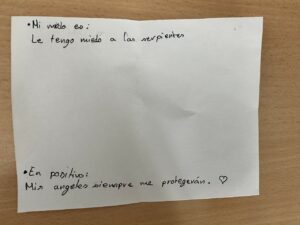 • Mi miedo es:
Le tengo miedo a las serpientes
• En positivo:
Mis angeles siempre me protegerán. ♡